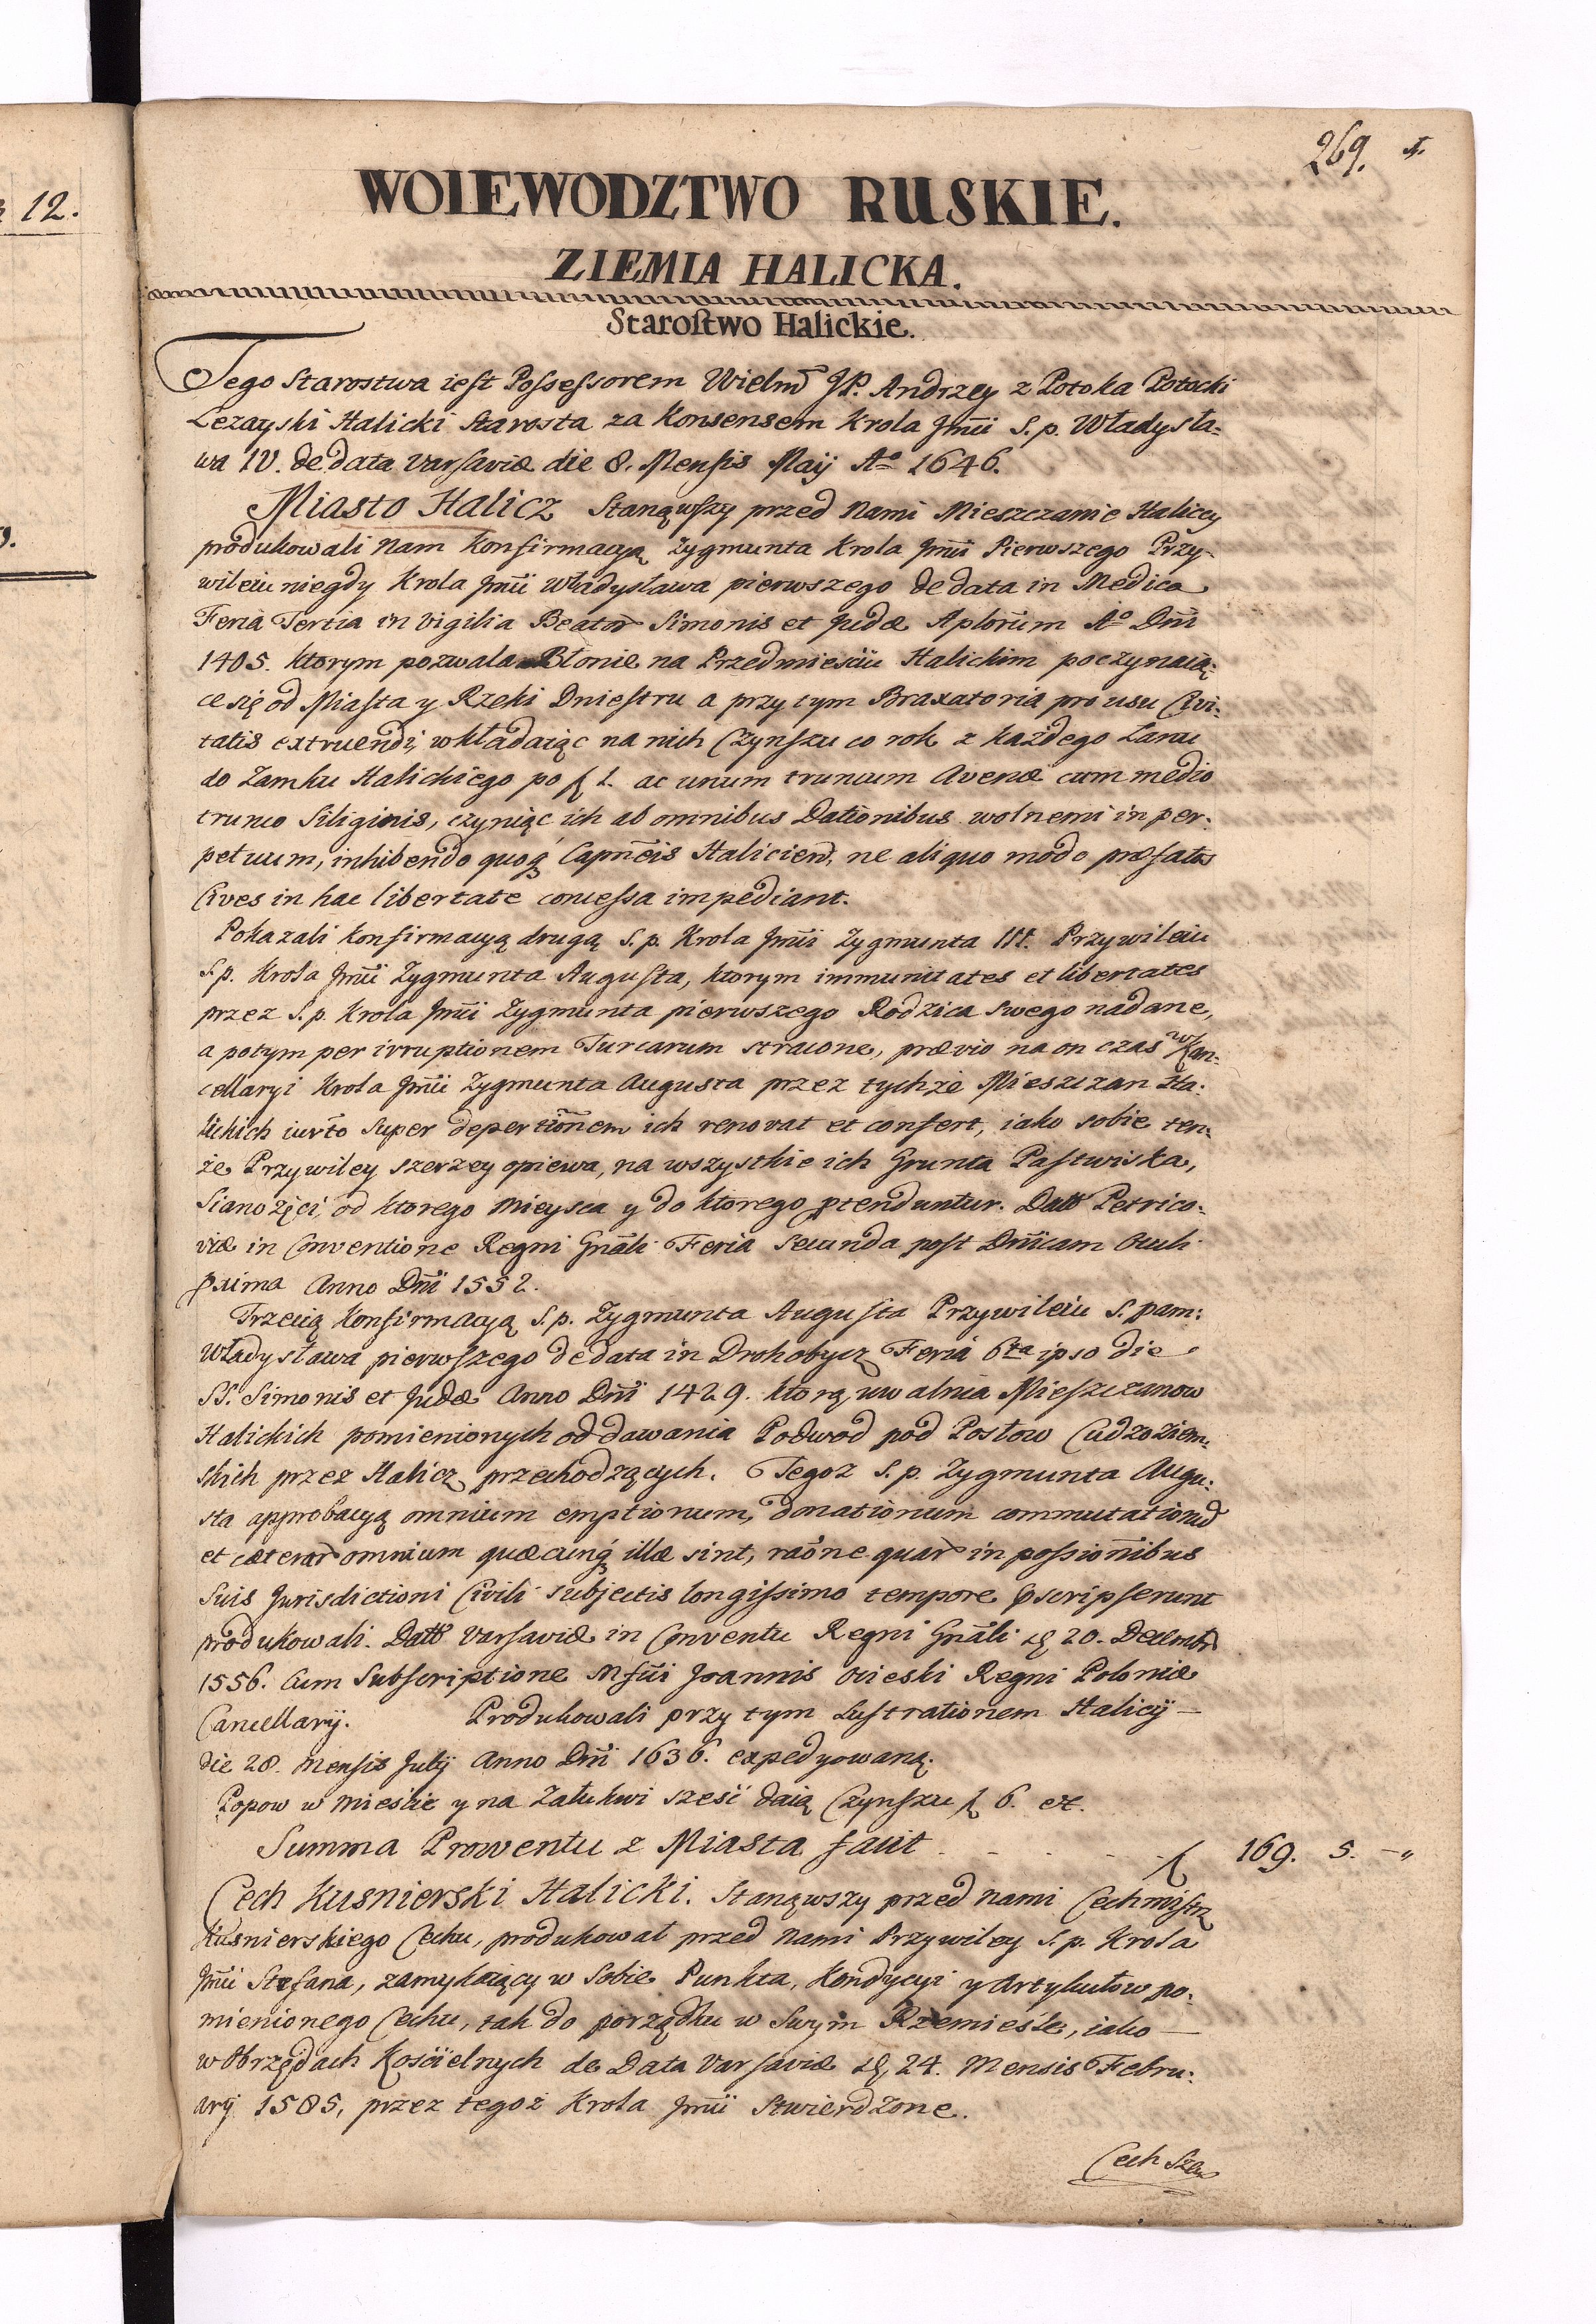 12.
269. 1.
WOIEWODZTWO RUSKIE.
ZIEMIA HALICKA.
Starostwo Halickie.
Tego Starostwa iest Possessorem Wielm̃ JP. Andrzey z Potoka Potocki
Lezayski Halicki Starosta za Konsensem Krola Jm̃i S. p. Władysła-
wa IV. de data Varsaviæ die 8. Mensis Maÿ Aº 1646.
Miasto Halicz Stanąwszy przed Nami Mieszczanie Haliccy
produkowali Nam Konfirmacyą Zygmunta Krola Jm̃i Pierwszego Przy-
wileiu niegdy Krola Jm̃i Władysława pierwszego de data in Medica
Feria Tertia in Vigilia Beator Simonis et Judæ Aplor̃um Aº Dñi
1405. ktorym pozwala Błonie na Przedmiesciu Halickim poczynaią-
ce się od Miasta y Rzeki Dniestru a przy tym Braxatoria pro usu Civi-
tatis extruendi, wkładaiąc na nich Czynszu co rok z każdego Łanu
do Zamku Halickiego po f 1. ac unum truncum Avenæ cum medio
trunco Siliginis, czyniąc ich ab omnibus Dationibus wolnemi in per-
petuum, inhibendo quoq́ Capñeis Halicien, ne aliquo modo præfatos
Cives in hac libertate concessa impediant.
Pokazali Konfirmacyą drugą S. p. Krola Jm̃i Zygmunta III. Przywileiu
S. p. Krola Jm̃i Zygmunta Augusta, ktorym immunitates et libertates
przez S. p. Krola Jm̃i Zygmunta pierwszego Rodzica swego nadane,
a potym per irruptionem Turcarum stracone, prævio na on czas w Kan-
cellaryi Krola Jm̃i Zygmunta Augusta przez tychże Mieszczan Ha-
lickich iur̃to super depertiõnem ich renovat et confert, iako sobie ten-
że Przywiley szerzey opiewa, na wszystkie ich Grunta Pastwiska,
Sianożęci, od ktorego mieysca y do ktorego ptenduntur. Datt Petrico-
viæ in Conventione Regni Gñali Feria Secunda post Dñicam Oculi
prima Anno Dñi 1552.
Trzecią Konfirmacyą S. p. Zygmunta Augusta Przywileiu S. pam:
Władysława pierwszego de data in Drohobycz Feria 6ta ipso die
SS. Simonis et Judæ Anno Dñi 1429. ktorą uwalnia Mieszczanow
Halickich pomienionych od dawania Podwod pod Posłow Cudzoziem-
skich przez Halicz przechodzących. Tegoz S. p. Zygmunta Augu-
sta approbacyą omnium emptionum, donationum commutationũ
et cæterar omnium quæcunq́ illæ sint, raõne quar in possioñibus
suis Jurisdictioni Civili subjectis longissimo tempore pscripserunt
produkowali. Datt Varsaviæ in Conventu Regni Gñali d 20. Decembr
1556. Cum Subscriptione Mfci Joannis Ocieski Regni Poloniæ
Cancellarÿ. Produkowali przy tym Lustrationem Halicÿ
die 28. Mensis Julÿ Anno Dñi 1636. expedyowaną.
Popow w mieście y na Załukwi sześć daią Czynszu f 6. et.
Summa Prowentu z Miasta facit . - . - . f 169. 5. -„
Cech Kusnierski Halicki. Stanąwszy przed Nami Cechmistrz
Kusnierskiego Cechu, produkował przed Nami Przywiley S. p. Krola
Jm̃i Stefana, zamykaiący w sobie Punkta, Kondycyi y Artykułow po-
mienionego Cechu, tak do porządku w Swym Rzemieśle, iako
w Obrzędach Kościelnych de Data Varsaviæ d, 24. Mensis Febru-
arÿ 1585, przez tegoż Krola Jm̃i Stwierdzone.
Cech Szew